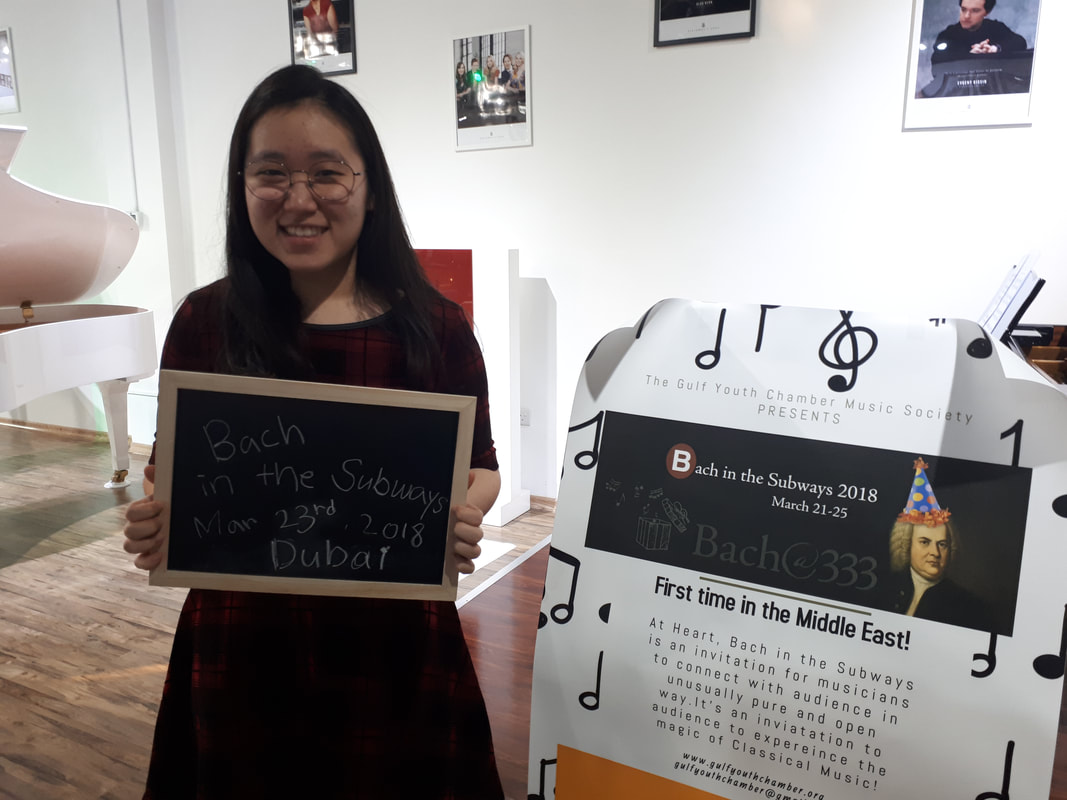 Bach
in the Subways
Mar 23rd, 2018
Dubai
The Gulf Youth Chamber Music Society
PRESENTS
Bach in the Subways 2018
March 21-25
Bach@333
First time in the Middle East!
At Heart, Bach in the Subways
is an invitation for musicians
to connect with audience in
unusually pure and open
way.It's an inviatation to
audience to expereince the
magic of Classical Music!
www.gulfyouthchamber.org